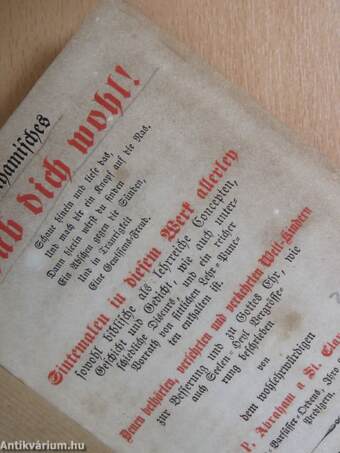 hamisches
ab dich wohl!
Schaue hinein und liese das,
Und mach dir ein Knopf auf die Nas.
Dann hierin wirst du finden
Ein Abscheu gegen die Sünden,
Und in Traurigkeit
Eine Gewissens-Freud.
Sintemalen in diesem Werk allerley
sowohl biblische als lehrreiche Concepten,
Geschicht und Gedicht, wie auch unter-
schiedliche Discurs, und ein reicher
Vorrath von sittlichen Lehr-Punc-
ten enthalten ist.
Denen bethörten, verirrten und verkehrten Welt-Kindern
zur Besserung und zu Gottes Ehr, wie
auch Seelen-Heyl Vergrösse-
rung beschrieben
von
dem wohlehrwürdigen
P. Abraham a St. Clar
Barfüsser-Ordens, Ihro
Predigern.
Antikvárium.hu
antikvarium.hu